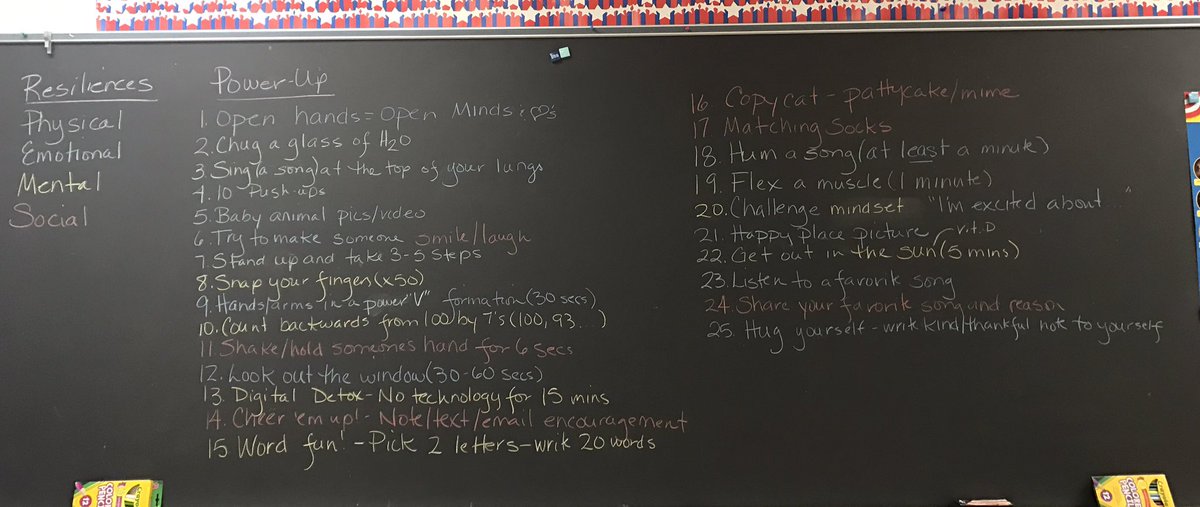 Resiliences
Physical
Emotional
Mental
Social
Power-Up
1. Open hands = Open Minds : ♡'s
2. Chug a glass of H2O
3. Sing (a song) at the top of your lungs
4. 10 Push-ups
5. Baby animal pics/video
6. Try to make someone smile/laugh
7. Stand up and take 3-5 steps
8. Snap your fingers (x50)
9. Hands/arms in a power "V" formation (30 secs)
10. Count backwards from 100 by 7's (100, 93...)
11. Shake/hold someones hand for 6 secs
12. Look out the window (30-60 secs)
13. Digital Detox - No technology for 15 mins
14. Cheer 'em up! - Note/text/email encouragement
15. Word fun! - Pick 2 letters - write 20 words
16. Copycat - pattycake/mime
17. Matching Socks
18. Hum a song (at least a minute)
19. Flex a muscle (1 minute)
20. Challenge mindset "I'm excited about..."
21. Happy Place picture
vit. D
22. Get out in the sun (5 mins)
23. Listen to a favorite song
24. Share your favorite song and reason
25. Hug yourself - write kind/thankful note to yourself
12
COLORED PENCILS
12
COLORED PENCILS